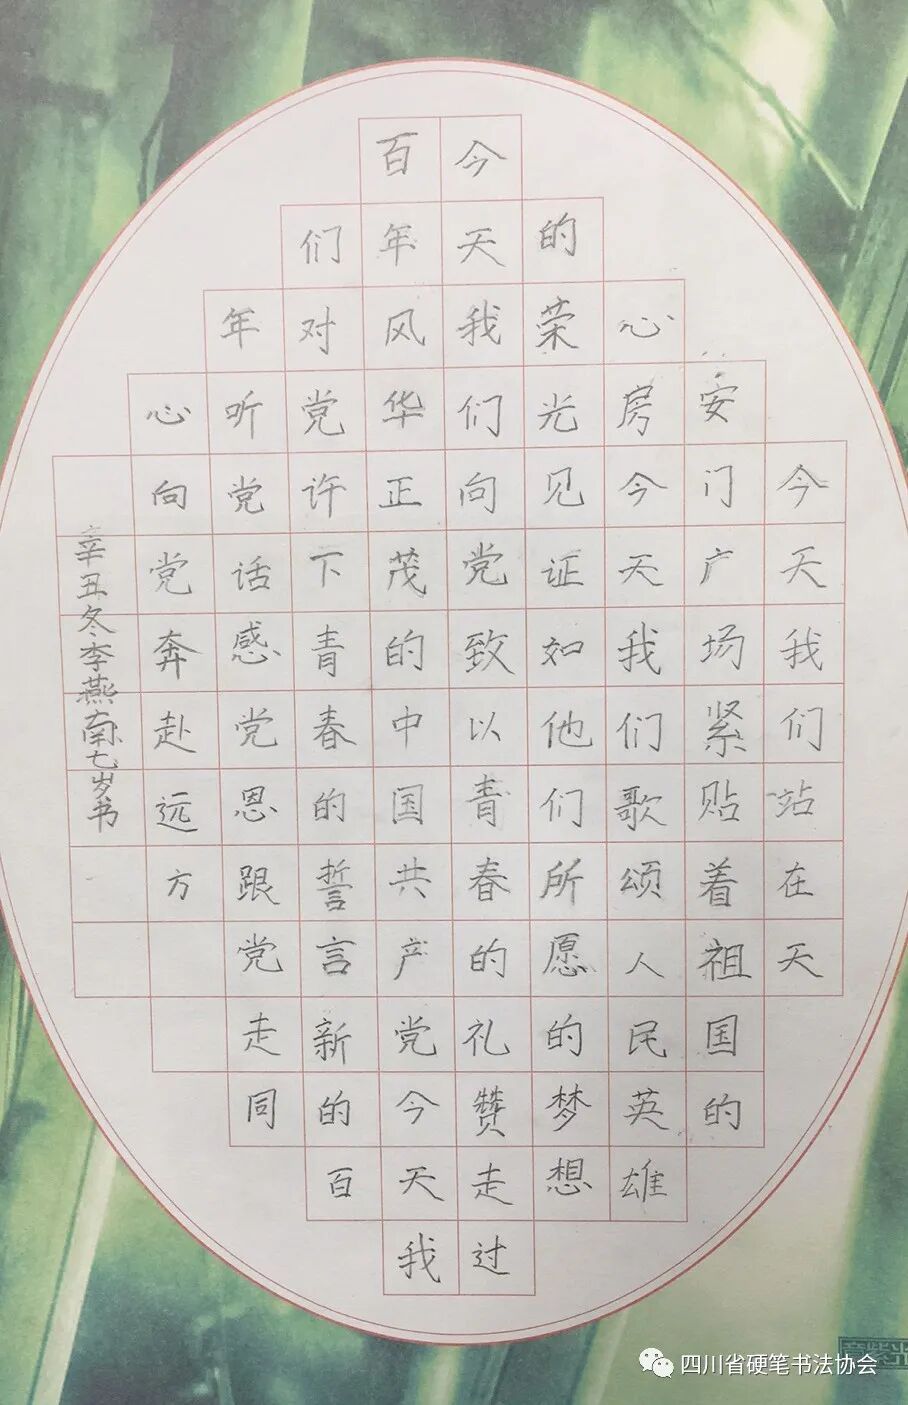 今天我们站在天
安门广场紧贴着祖国的
心房今天我们歌颂人民英雄
的荣光见证如他们所愿的梦想
今天我们向党致以青春的礼赞走过
百年风华正茂的中国共产党今天我
们对党许下青春的誓言新的百
年听党话感党恩跟党走同
心向党奔赴远方
辛丑冬李燕南七岁书
四川省硬笔书法协会